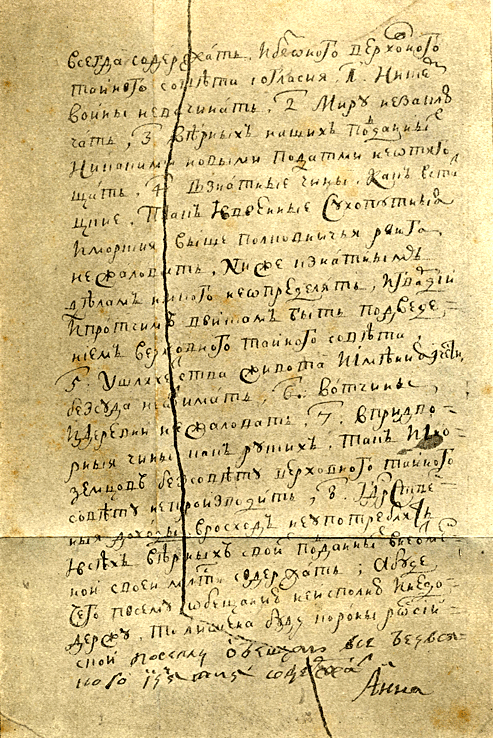 всегда содержать. И без оного верховного
тайного совѣта согласия. 1. Ни с кем
войны не вчинать. 2. Миру не заклю
чать, 3. вѣрных наших подданных
Никакими новыми податми не отяго
щать. 4. В знатные чины, какъ въ ста
цкие, такъ и в военные Сухопутные
И морские выще полковничья ранга
не жаловать, Ниже к знатнымъ
дѣламъ никого не определять, И гвардии
И протчимъ войскам быть под веде,
ниемъ верховного тайного совѣта.
5. У шляхетства живота и имѣния и чести,
без суда не отимать, 6. вотчины,
И деревни не жаловать. 7. в придво=
рныя чины как руских, такъ и ино=
земцовъ без совѣту верховного тайного
совѣту не производить, 8. Гдрственн
ныя доходы в росходъ не употреблять
И всѣхъ вѣрныхъ своих подданных в неотме
ной своей млсти содержать; А буде
чего по сему обещанию не исполню и не до=
держу, то лишена буду короны росси=
ской по сему обещаю все без вся=
кого изъятия содержать
Анна